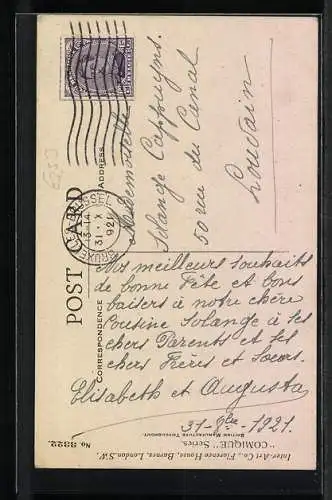 POST CARD
CORRESPONDENCE
ADDRESS
BRUXELLES BRUSSEL
13-14
31 X
1921
Mademoiselle
Solange Cappuyns.
50 rue du Canal
Louvain
Nos meilleurs souhaits
de bonne fête et bons
baisers à notre chère
Cousine Solange à ses
chers Parents et ses
chers Frères et Soeurs.
Elisabeth et Augusta
31-8bre-1921.
Inter-Art Co., Florence House, Barnes, London, S.W.
"COMIQUE" Series.
British Manufacture Throughout.
No. 3322.